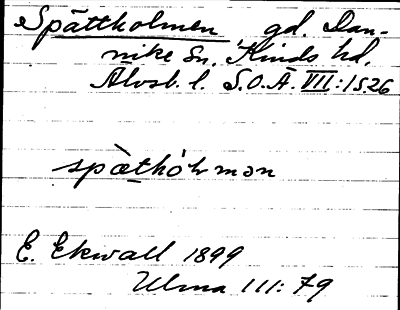 Spättholmen gd. Dan-
nike Sn. Kinds hd.
Älvsb. l. S.O.Ä. VII:1526
spæ̀thólmən
E. Ekwall 1899
Ulma 111: 79